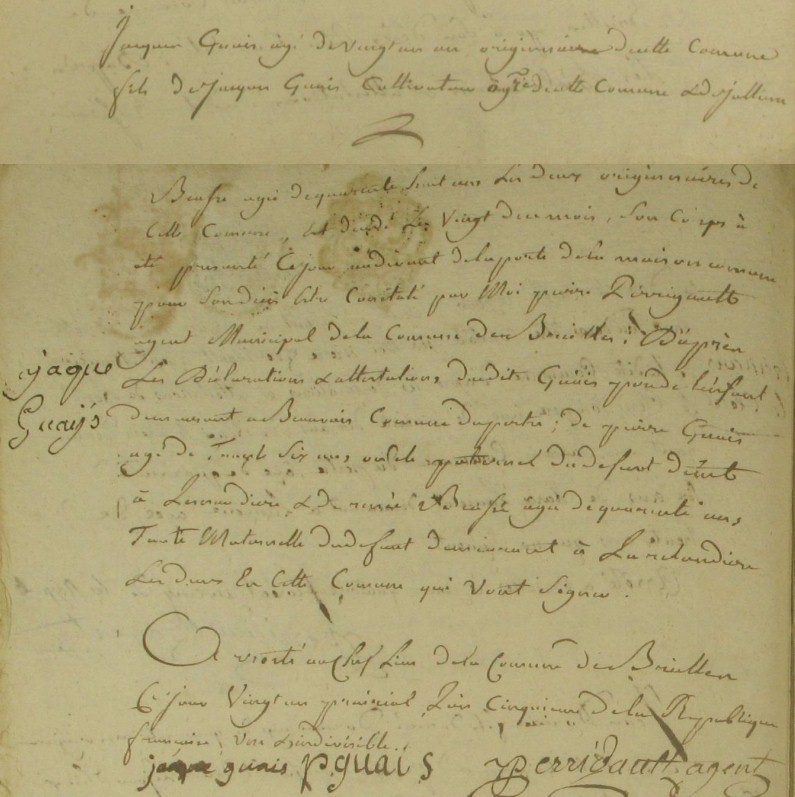 Jacques Guais agé de vingt un an originaire de cette Comune
fils de Jacques Guais Cultivateur de cette Comune & de Jullienne
agée de quarante huit ans Les deux originaires de
Cette Comune, est décédé vingt du mois, Son Corps à
été presenté Ce jour au devant de la porte de la maison comune
pour Son décès être Constaté par Moi pierre Perrigault
agent Municipal de la Comune des Brielles : D'après
Les Déclarations & attestations, dudit Guais père de l'enfant
demeurant a Beauvais Comune du pertre ; de pierre Guais
agé de Trente Six ans, oncle paternel du defunt
à & de agée de quarante ans
Tante Maternelle du defunt demeurant à
Les deux En Cette Comune qui Vont Signer.
jaque
Guays
Arresté au Chef Lieu de la Comune des Brielles
Ce jour Vingt un prairial L'an Cinquieme de la Republique
francaise une & indivisible.
jaque guais pguais pperrigault agent